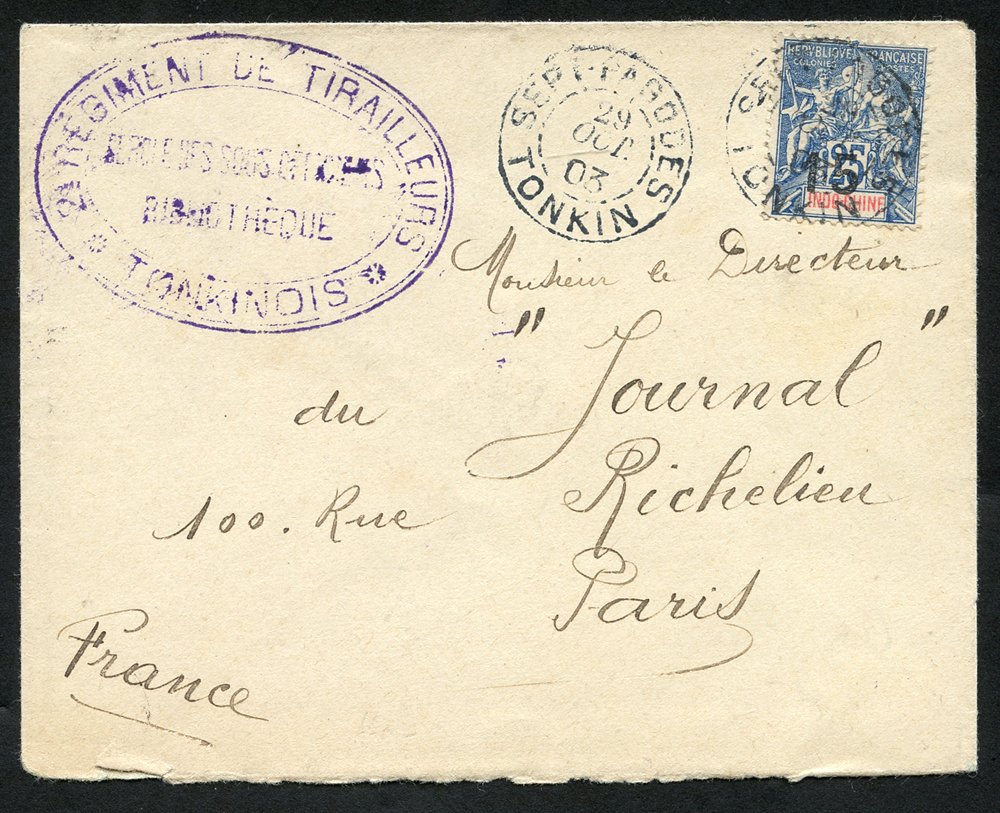 2E REGIMENT DE TIRAILLEURS
CERCLE DES SOUS OFFICIERS
BIBLIOTHÈQUE
* TONKINOIS *
SEPT-PAGODES
29
OCT
03
TONKIN
REPUBLIQUE FRANÇAISE
COLONIES POSTES
25
15
INDO-CHINE
SEPT-PAGODES
TONKIN
Monsieur le Directeur
du "Journal"
100. Rue Richelieu
Paris
France